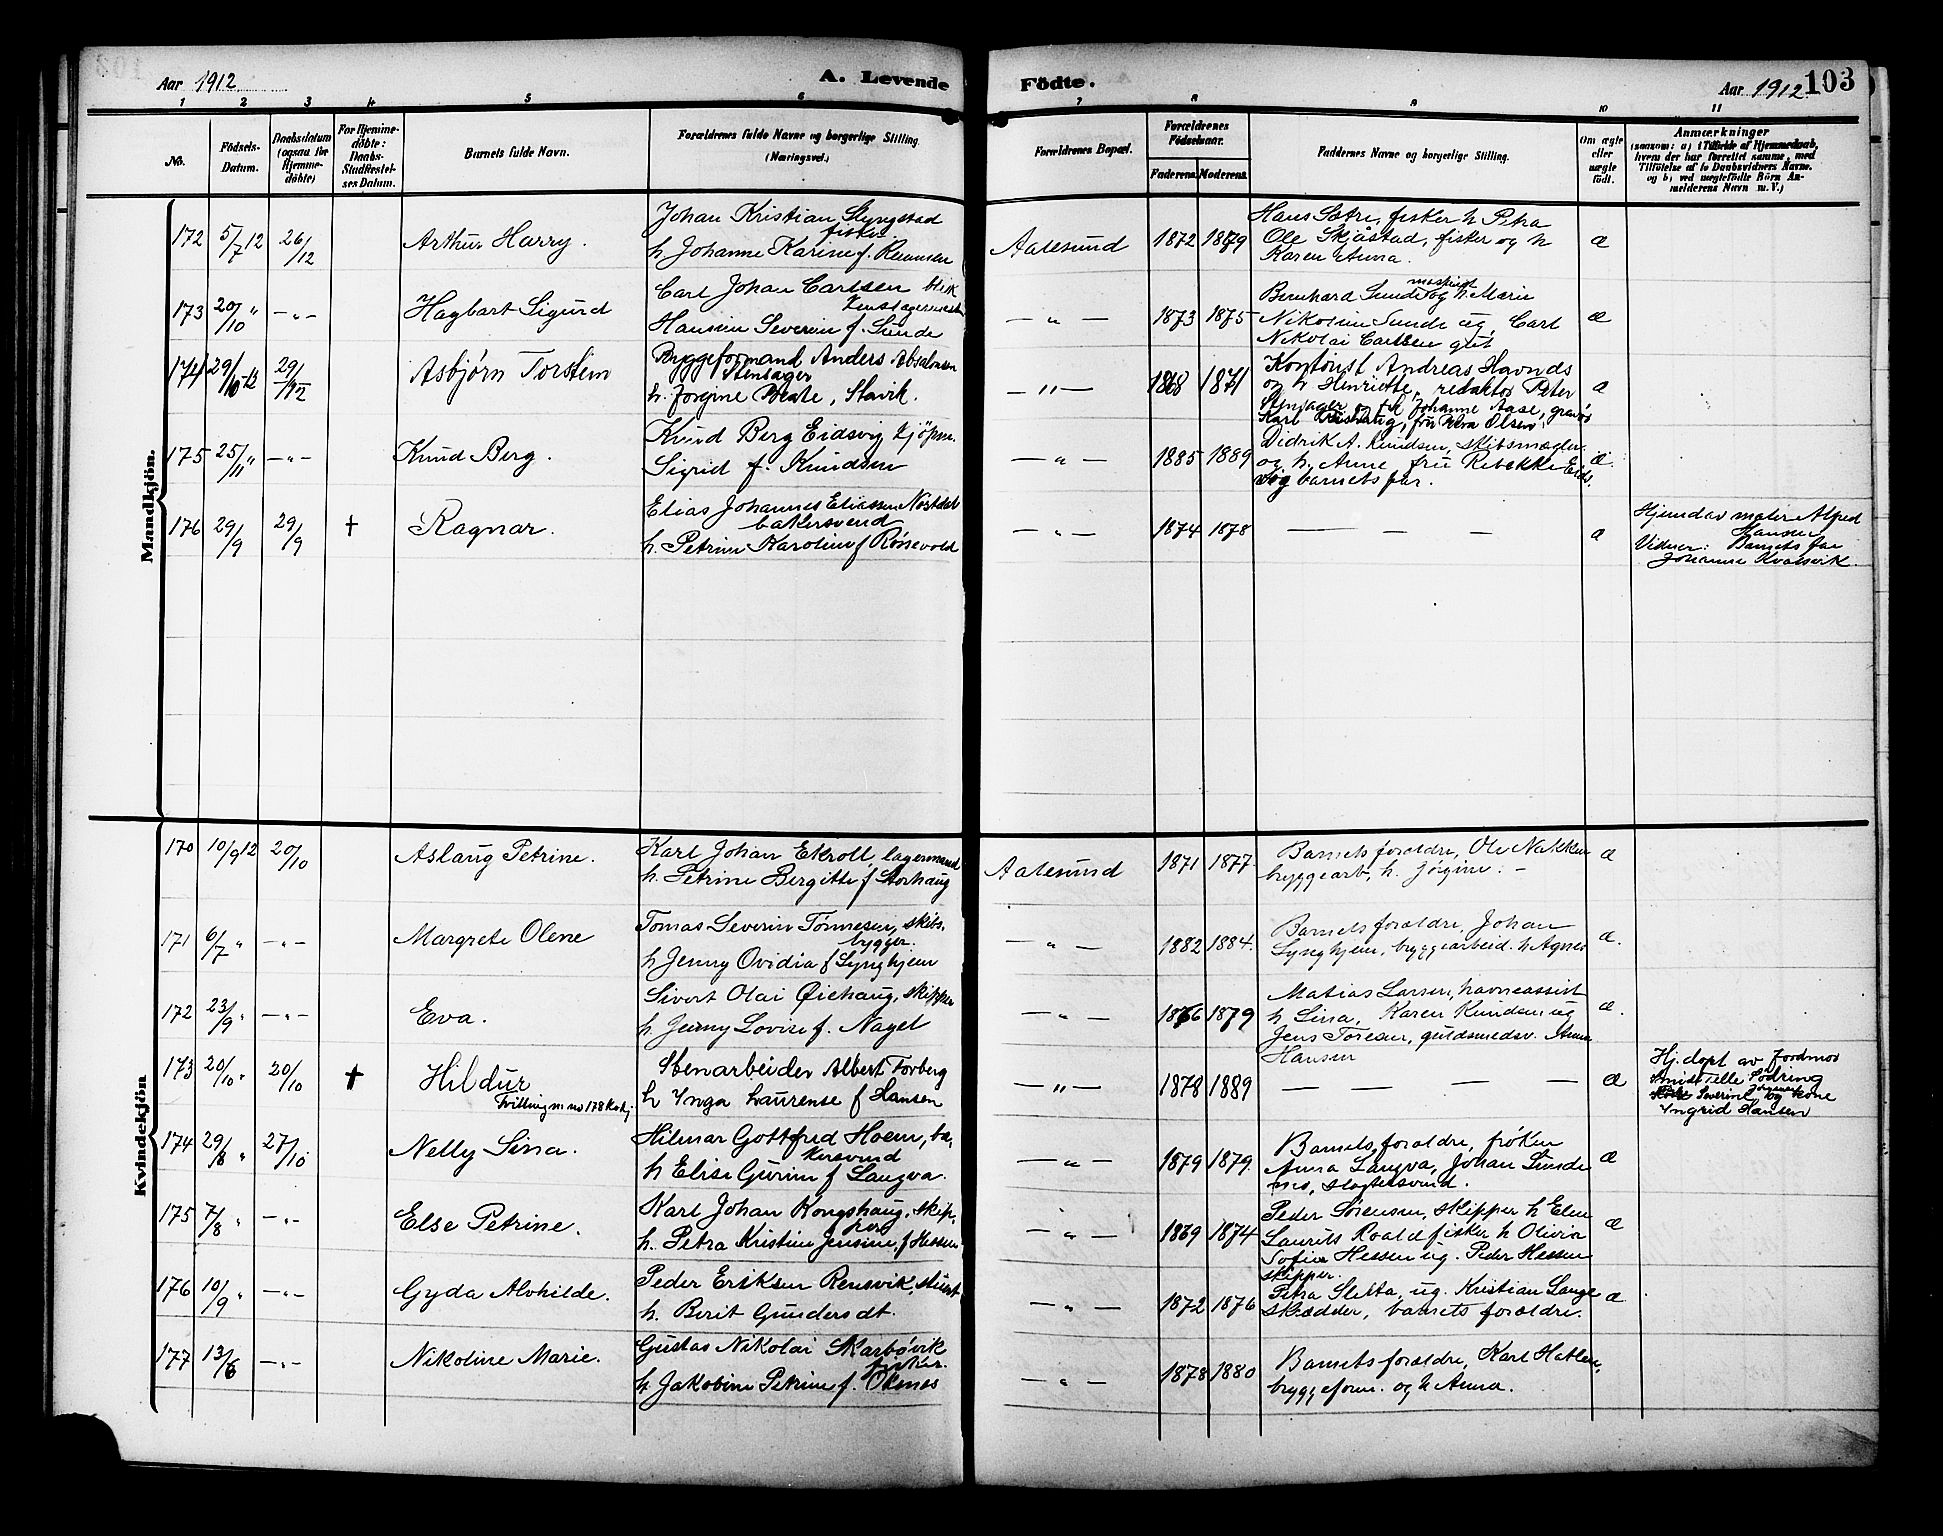 Aar 1912
A. Levende
Födte.
Aar 1912
103
1 2 3 4 5 6 7 8 9 10 11
No.
Födsels-
Datum.
Daabsdatum
(ogsaa for
Hjemme-
döbte)
For Hjemme-
döbte:
Daabs-
Stadfæstel-
ses Datum.
Barnets fulde Navn.
Forældrenes fulde Navne og borgerlige Stilling.
(Næringsvei.)
Forældrenes Bopæl.
Forældrenes
Födselsaar.
Faderens. Moderens.
Faddernes Navne og borgerlige Stilling.
Om ægte
eller
uægte
født.
Anmærkninger
(saasom: a) i Tilfælde af Hjemmedaab,
hvem der har forrettet samme, med
Tilföielse af to Daabsvidners Navne.
og b) ved uægtefödte Börn An-
melderens Navn m. V.)
Mandkjön.
172 5/7 12 26/12
Arthur Harry.
Johan Kristian Slyngstad
fisker
h. Johanne Karine f.
Aalesund
1872 1879
Hans Sætre, fisker h Petra
Ole Skjåstad, fisker og h
Karen Anna.
æ
173 20/10 " — „ —
Hagbart Sigurd
Carl Johan Carlsen blik
Hansine Severine f. Sunde
— „ —
1873 1875
Bernhard Sunde og h. Marie
maskinist
Nikoline Sunde ug, Carl
Nikolai Carlsen gut
æ
174 29/10-12 29/-12
Asbjørn Torstein
Byggeformand Anders Absalonsen
Stensager
h. Jorgine Beate, Stavik.
— „ —
1868 1871
Kontorist Andreas Havnds
og h Henriette, redaktør Peter
Stensager og frk Johanne Aase, gravør
Karl, fru Olsen.
æ
175 25/11 " — „ —
Knud Berg.
Knud Berg Eidsvig kjöpm.
Sigrid f. Knudsen
— „ —
1885 1889
Didrik A. Knudsen, skibsmægler
og h. Anne fru Rebekke Eids.
vig barnets far.
æ
176 29/9 29/9 †
Ragnar.
Elias Johannes Eliassen Nöstdal
bakersvend
h. Petrine Karoline f Rønsevold
— „ —
1874 1878
— — —
æ
Hjemdøv maler Alfred
Hansen
Vidner: Barnets far
Johanna Kvalsvik.
Kvindekjön
170 10/9 12 20/10
Aslaug Petrine.
Karl Johan Ekroll, lagermand
h. Petrine Bergitte f Storhaug
Aalesund
1871 1877
Barnets foraldre, Ole Nakken
byggearb, h. Jørgine. –
æ
171 6/7 " — „ —
Margrete Olene
Tomas Severin Tønnesen, skibs,
bygger.
h Jenny Ovidia f Lynghjem
— „ —
1882 1884.
Barnets foraldre, Johan
Lynghjem, byggearbeid. h Agnes
æ.
172 23/9 " — „ —
Eva.
Sivert Olai Øiehaug, skipper
h. Jenny Lovise f. Nagel
— „ —
1866 1879
Matias Larsen, havneassist
h Lina, Karen Knudsen ug
Jens Toresen, guldsmedsv. Anna
Hansen
æ.
173 20/10 " 20/10 †
Hildur
Tvilling m no 178
Stenarbeider Albert Torberg
h Ynga Laurense f Hansen
— „ —
1878 1889
— — — —
æ
Hj. døpt av Jordmor
Smidt Tille Södring
Severine Jørgensen og kone
Yngrid Hansen
174 29/8 " 27/10
Nelly Lina.
Hilmar Gottfred Hoem, ba,
kersvend
h Elise Gurine f Langva.
— „ —
1879 1879.
Barnets foraldre, frøken
Anna Langva, Johan Sunde
mo, slagtersvend.
æ
175 7/8 " — „ —
Else Petrine.
Karl Johan Kongshaug, skip,
per
h. Petra Kristine Jensine, f Hessen
— „ —
1869 1874
Peder Sørensen, skipper h Elen
Laurits Roald fisker h Olivia
Sofie Hessen ug. Peder Hessen
skipper.
æ
176 10/9 " — „ —
Gyda Alvhilde.
Peder Eriksen Rensvik, stuert
h. Berit Gundersdt.
— „ —
1872 1876
Petra Sletta, ug. Kristian Lange
skrædder, barnets foraldre.
æ
177 13/6 — „ —
Nikoline Marie.
Gustas Nikolai Skarbøvik
fisker.
h Jakobine Petrine f. Oksnes
— „ —
1878 1880
Barnets foraldre, Karl Hatlen,
byggeform. og h Anna.